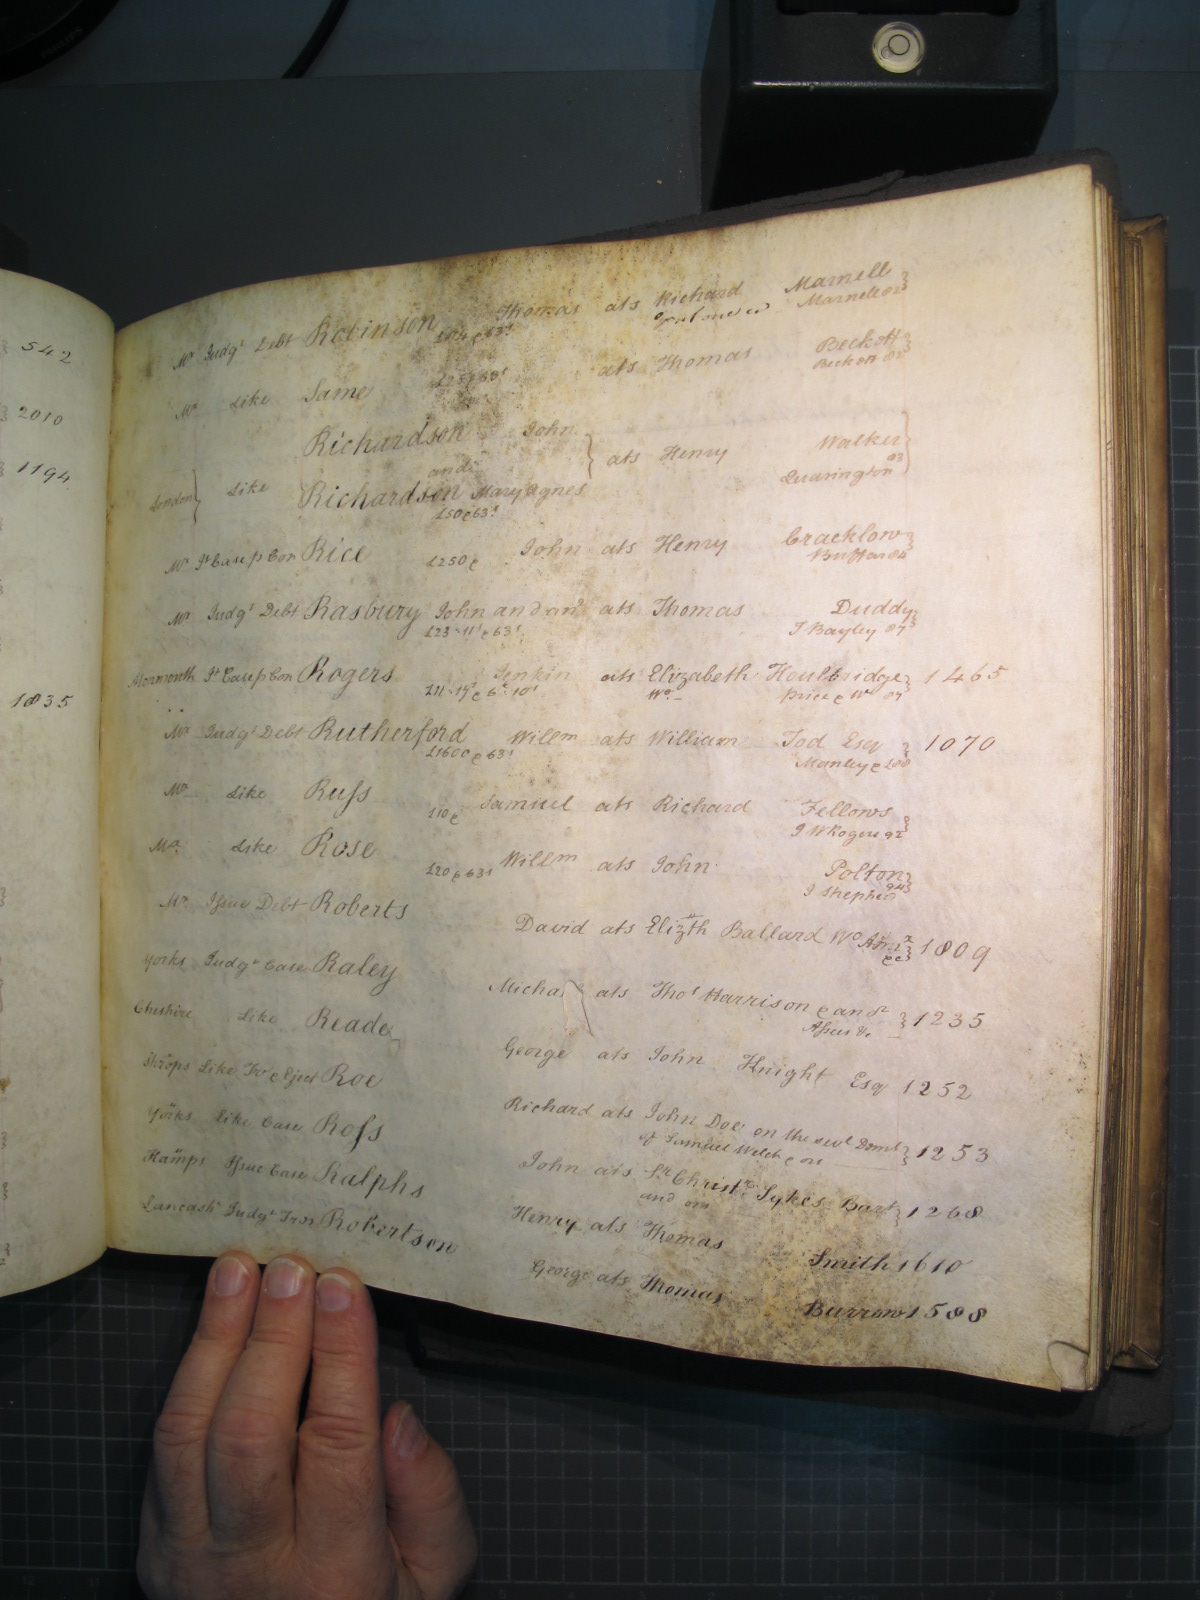 542
2010
1194
1835
Mx Judgt Debt Robinson Thomas ats Richard Marnell
£104 & 63s Marnell 82
Mx Like Same ats Thomas Beckott
Beckott 82
Richardson John
and ats Henry Walker
London Like Richardson Mary Agnes Quarington 83
£50 & 63s
Mx Jt Case p Con Rice John ats Henry Cracklow
£250 &
Mx Judgt Debt Rasbury John and anr ats Thomas Duddy
£23-11s & 63s J Bayley 87
Monmouth Jt Case p Con Rogers Jenkin ats Elizabeth Houlbridge 1465
Wo Price & Wt 87
Mx Judgt Debt Rutherford Willm ats William Tod Esq 1070
£1600 & 63s Manley &
Mx Like Ruſs Samuel ats Richard Fellows
£10 & J W Rogers 92
Mx Like Rose Willm ats John Polton
£20 & 63s J Shepherd 94
Mx Iſsue Debt Roberts David ats Elizth Ballard Wo Admx 1809
&c
Yorks Judgt Case Raley Michal ats Thos Harrison & anor 1235
Aſsees &c
Cheshire Like Reade George ats John Knight Esq 1252
Shrops Like Tr & Eject Roe Richard ats John Doe on the sevl Demes 1253
of Samuel Welch & ors
Yorks Like Case Roſs John ats Sr Christr Sykes Bart 1268
and ors
Hamps Iſsue Case Ralphs Henry ats Thomas Smith 1610
Lancash Judgt Trs Robertson George ats Thomas Burrow 1588